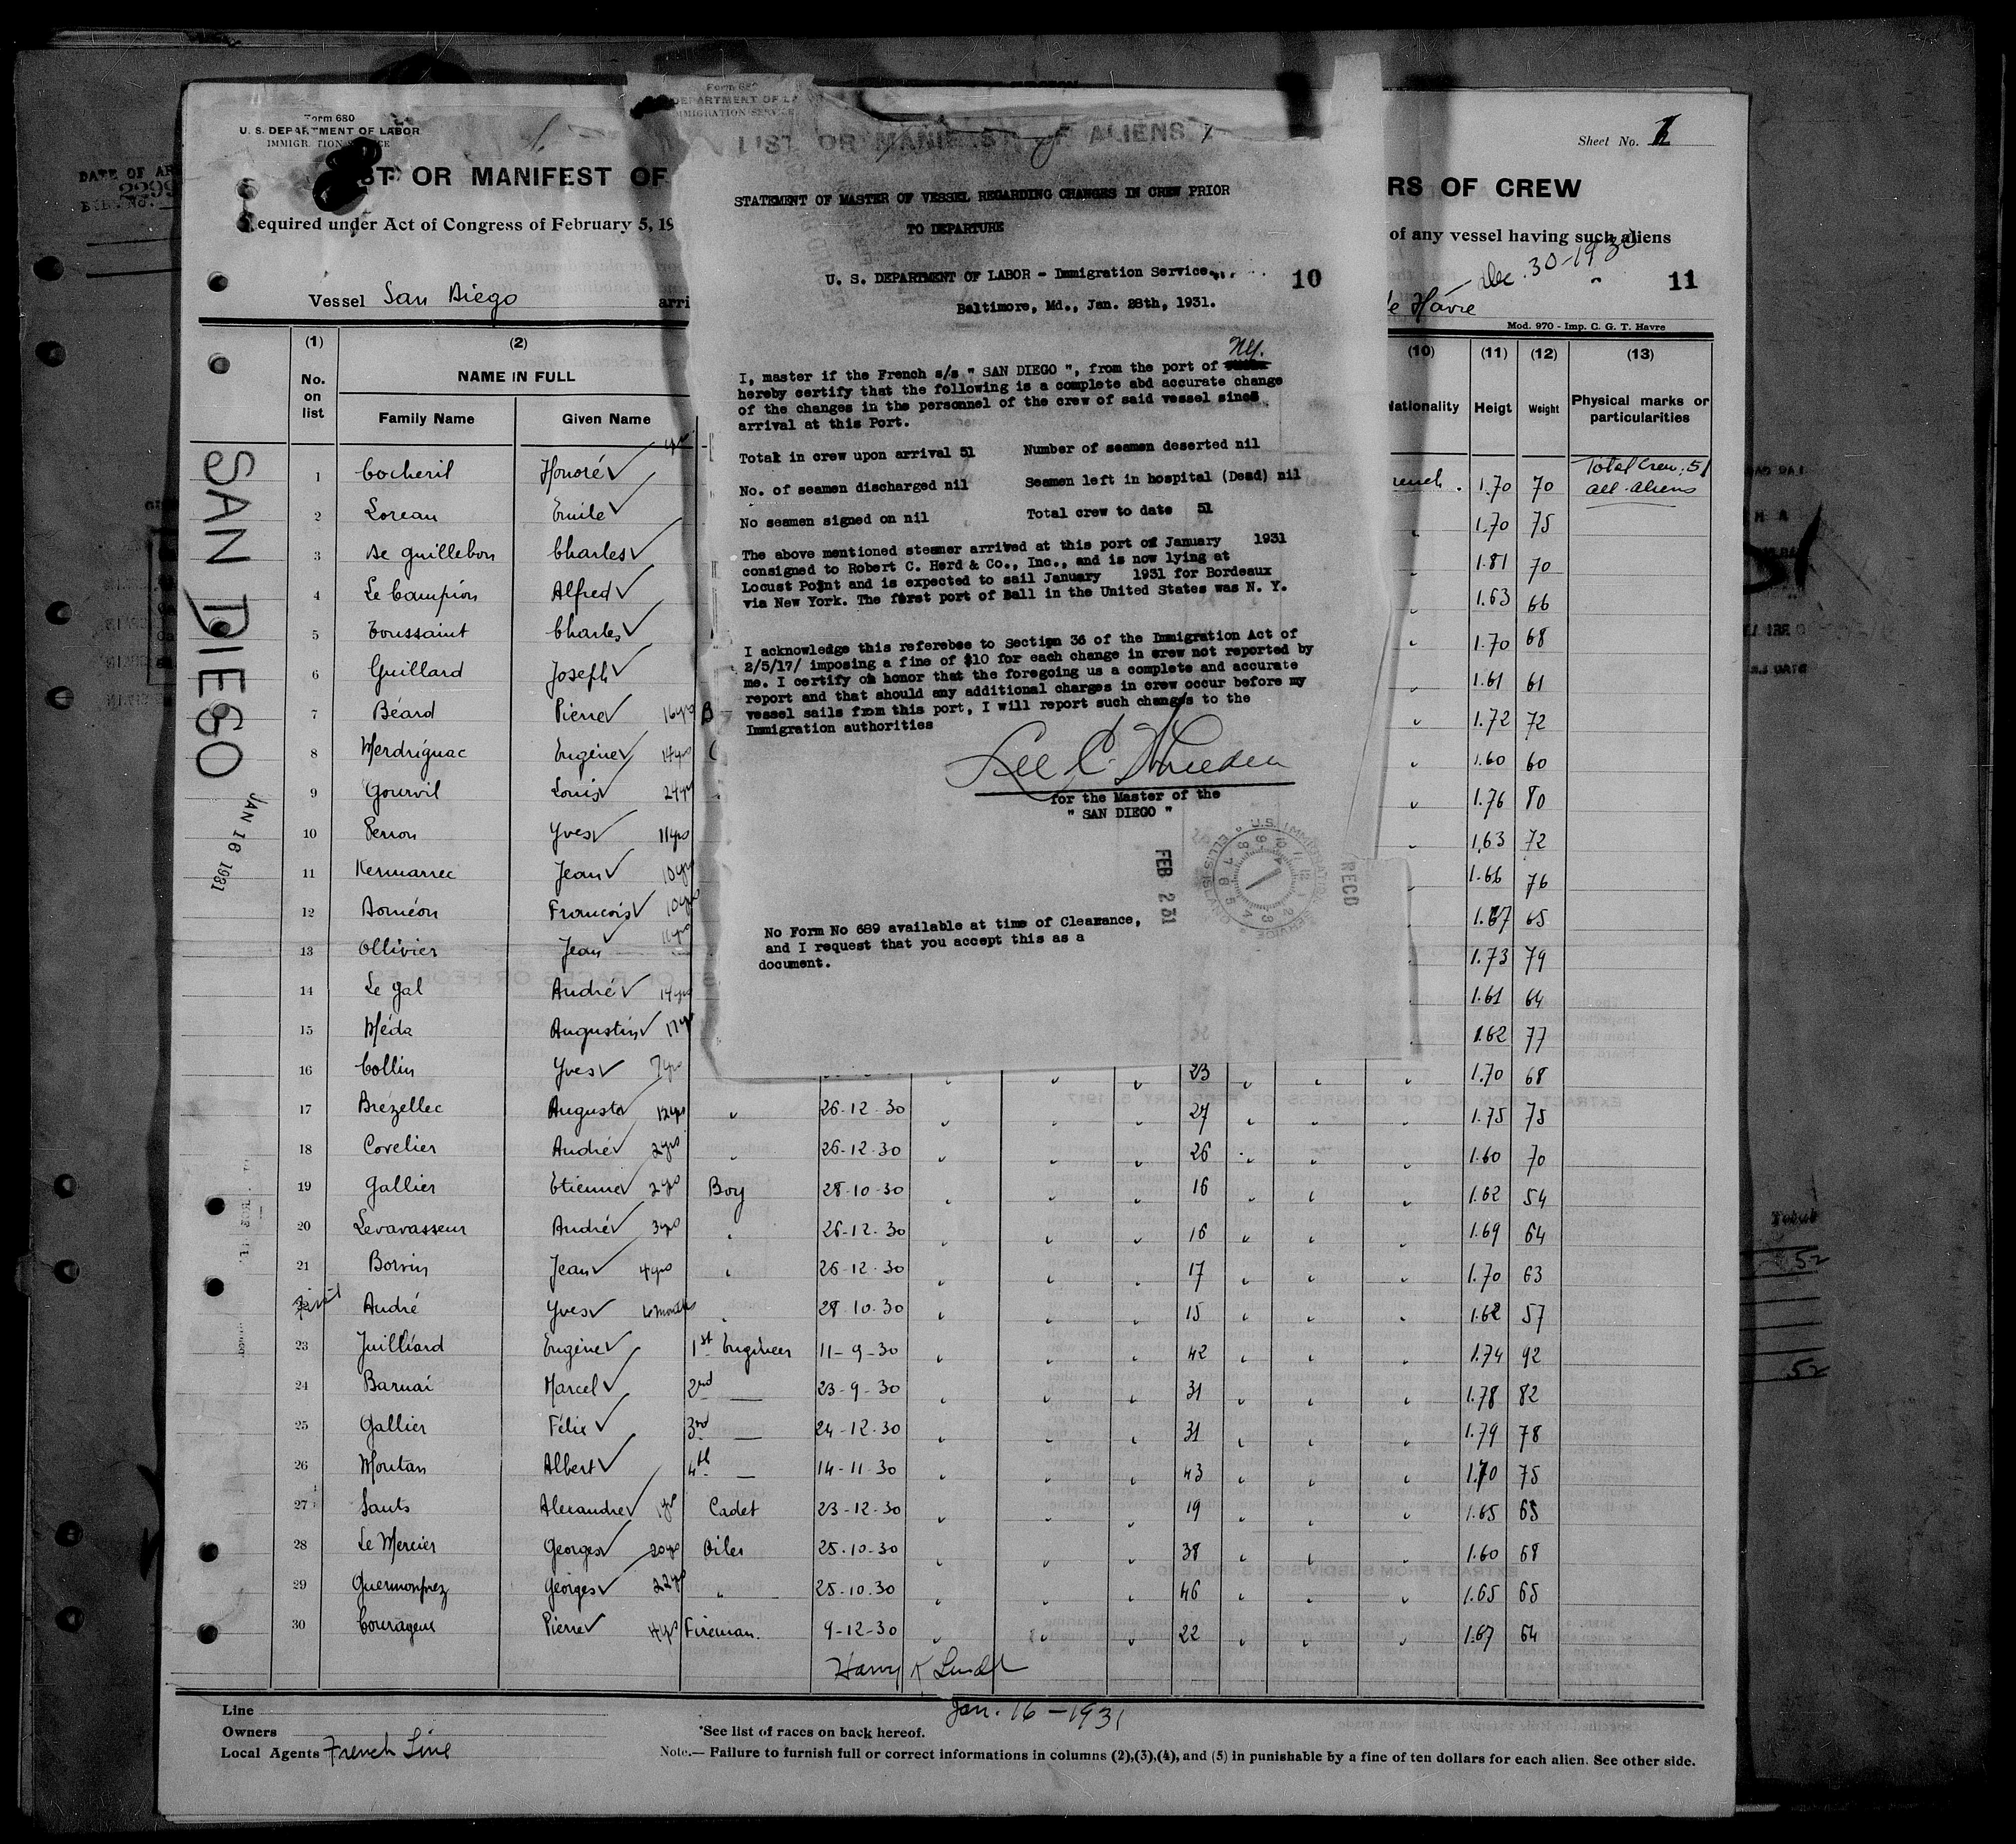 Form 680
U. S. DEPARTMENT OF LABOR
Sheet No.
ST OR MANIFEST OF
RS OF CREW
equired under Act of Congress of February 5, 19
of any vessel having such aliens
Dec. 30-1930
11
Vessel San Diego arri
e Hâvre
Mod. 970 - Imp. C. G. T. Havre
Form 680
DEPARTMENT OF LA
MMIGRATION SERVICE
LIST OR MANIFEST OF ALIENS
STATEMENT OF MASTER OF VESSEL REGARDING CHANGES IN CREW PRIOR
TO DEPARTURE
U. S. DEPARTMENT OF LABOR - Immigration Service
10
Baltimore, Md., Jan. 28th, 1931.
NY.
I, master if the French s/s " SAN DIEGO ", from the port of
hereby certify that the following is a complete abd accurate change
of the changes in the personnel of the crew of said vessel since
arrival at this Port.
Total in crew upon arrival 51 Number of seamen deserted nil
No. of seamen discharged nil Seamen left in hospital (Dead) nil
No seamen signed on nil Total crew to date 51
The above mentioned steamer arrived at this port of January 1931
consigned to Robert C. Herd & Co., Inc., and is now lying at
Locust Point and is expected to sail January 1931 for Bordeaux
via New York. The first port of Ball in the United States was N. Y.
I acknowledge this referebee to Section 36 of the Immigration Act of
2/5/17/ imposing a fine of $10 for each change in crew not reported by
me. I certify on honor that the foregoing us a complete and accurate
report and that should any additional charges in crew occur before my
vessel sails from this port, I will report such changes to the
Immigration authorities
for the Master of the
" SAN DIEGO "
FEB 2 31
RECD
No Form No 689 available at time of Clearance,
and I request that you accept this as a
document.
(1) (2) (10) (11) (12) (13)
No. on list NAME IN FULL Family Name Given Name Nationality Heigt Weight Physical marks or particularities
Total Crew: 51
all aliens
SAN DIEGO
JAN 16 1931
1 Cocheril Honoré rench. 1.70 70
2 Loreau Emile 1.70 75
3 de Guillebon Charles 1.81 70
4 Le Campion Alfred 1.63 66
5 Toussaint Charles 1.70 68
6 Guillard Joseph 1.61 61
7 Béard Pierre 16yrs B 1.72 72
8 Merdrignac Eugène 14yrs 1.60 60
9 Gourvil Louis 24yrs 1.76 80
10 Perron Yves 11yrs 1,63 72
11 Kermarrec Jean 10yrs 1.66 76
12 Doméon Francois 10yrs 1.67 65
13 Ollivier Jean 11yrs 1.73 79
14 Le Gal André 14yrs 1.61 64
15 Méda Augustin 17yrs 1.62 77
16 Collin Yves 7yrs 23 1.70 68
17 Brézellec Auguste 12yrs " 26-12-30 27 1.75 75
18 Covelier André 2yrs " 26-12-30 26 1.60 70
19 Gallier Etienne 2yrs Boy 28-10-30 16 1.62 54
20 Levavasseur André 3yrs " 26-12-30 16 1.69 64
21 Borvin Jean 4yrs " 26-12-30 17 1.70 63
André Yves 6 months " 28-10-30 15 1.62 57
23 Juilliard Eugène 1st Engineer 11-9-30 42 1.74 92
24 Barnai Marcel 2nd — 23-9-30 31 1.78 82
25 Gallier Félix 3rd — 24-12-30 31 1.79 78
26 Moutan Albert 4th — 14-11-30 43 1.70 75
27 Sauts Alexandre 1yr Cadet 23-12-30 19 1.65 65
28 Le Mercier Georges 20yrs Oiler 25-10-30 38 1.60 68
29 Guermonprez Georges 22yrs " 25-10-30 46 1.65 65
30 Courageux Pierre 4yrs Fireman. 9-12-30 22 1.67 64
Jan. 16-1931
Line
Owners
Local Agents French Line
*See list of races on back hereof.
Note.— Failure to furnish full or correct informations in columns (2),(3),(4), and (5) in punishable by a fine of ten dollars for each alien. See other side.
Total
52
52